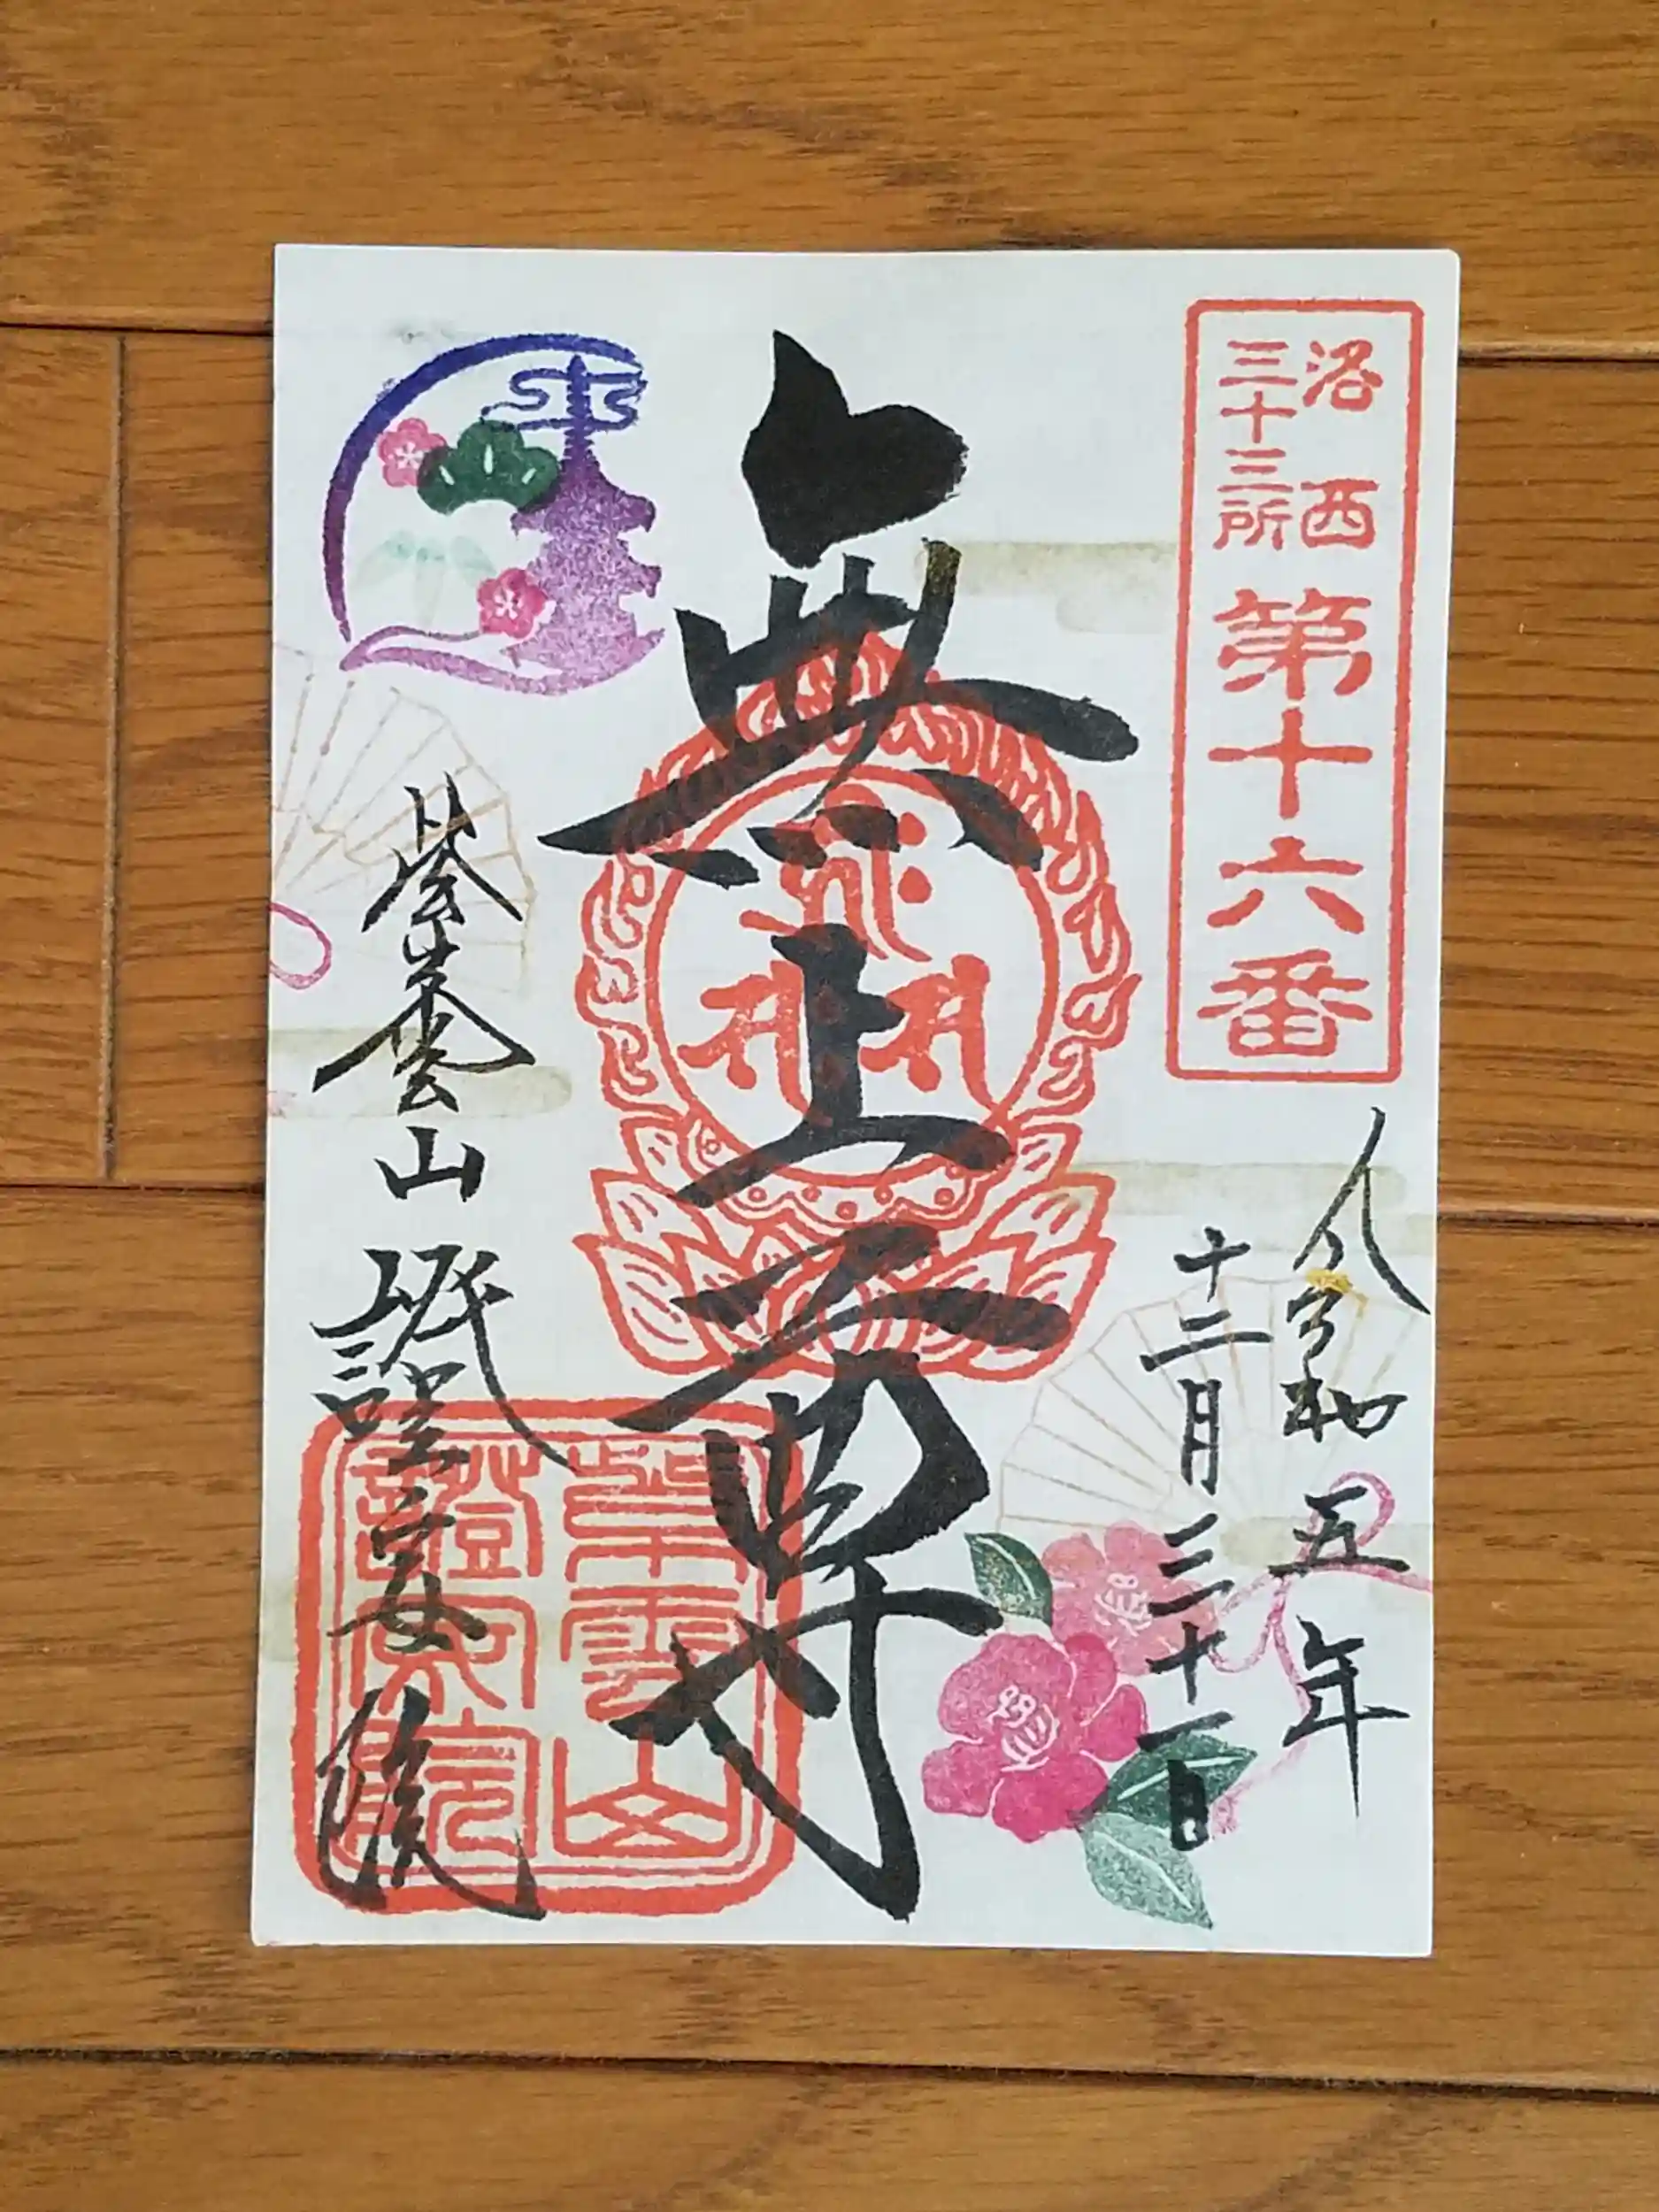 洛西
三十三所
第十六番
令和五年
十二月三十一日
無上尊
紫雲山 證安院
紫雲山
證安院